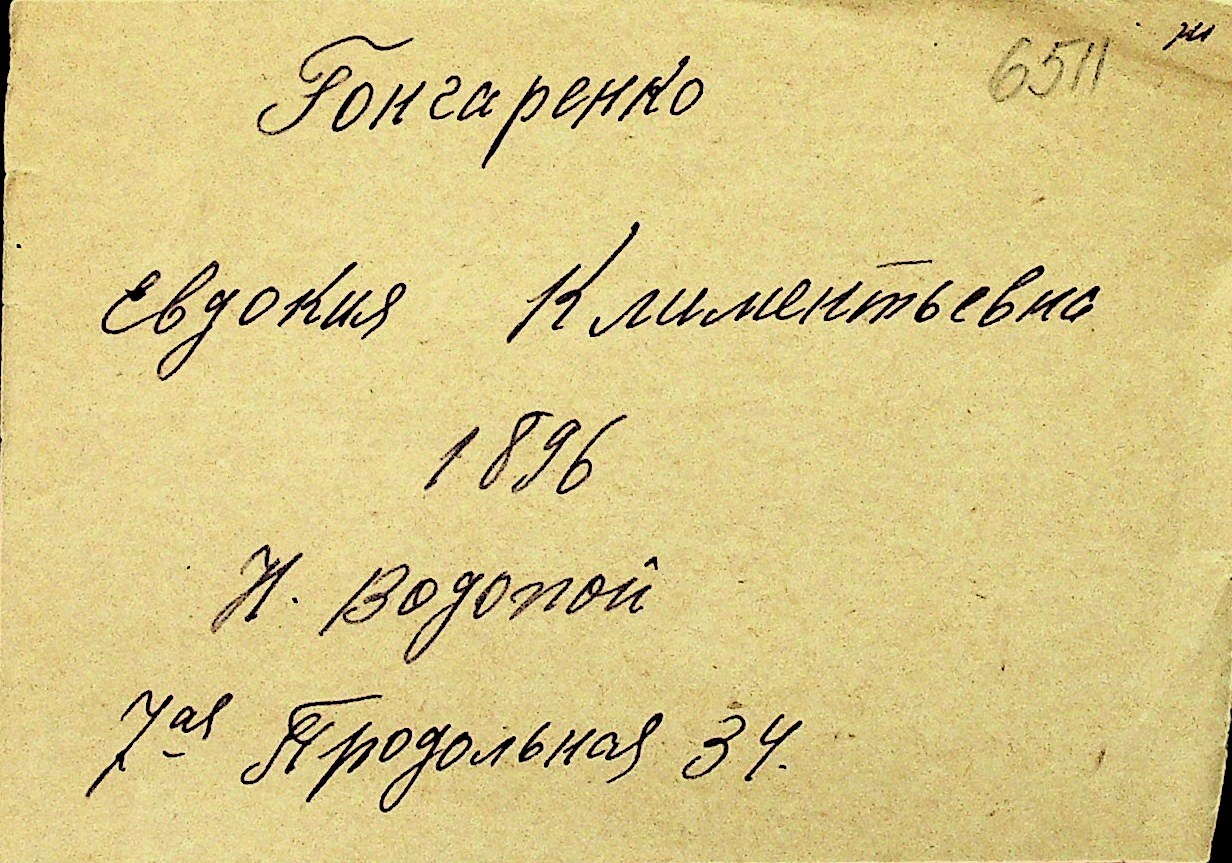 6511
Гончаренко
Евдокия Климентьевна
1896
Н. Водопой
7ая Продольная 34.